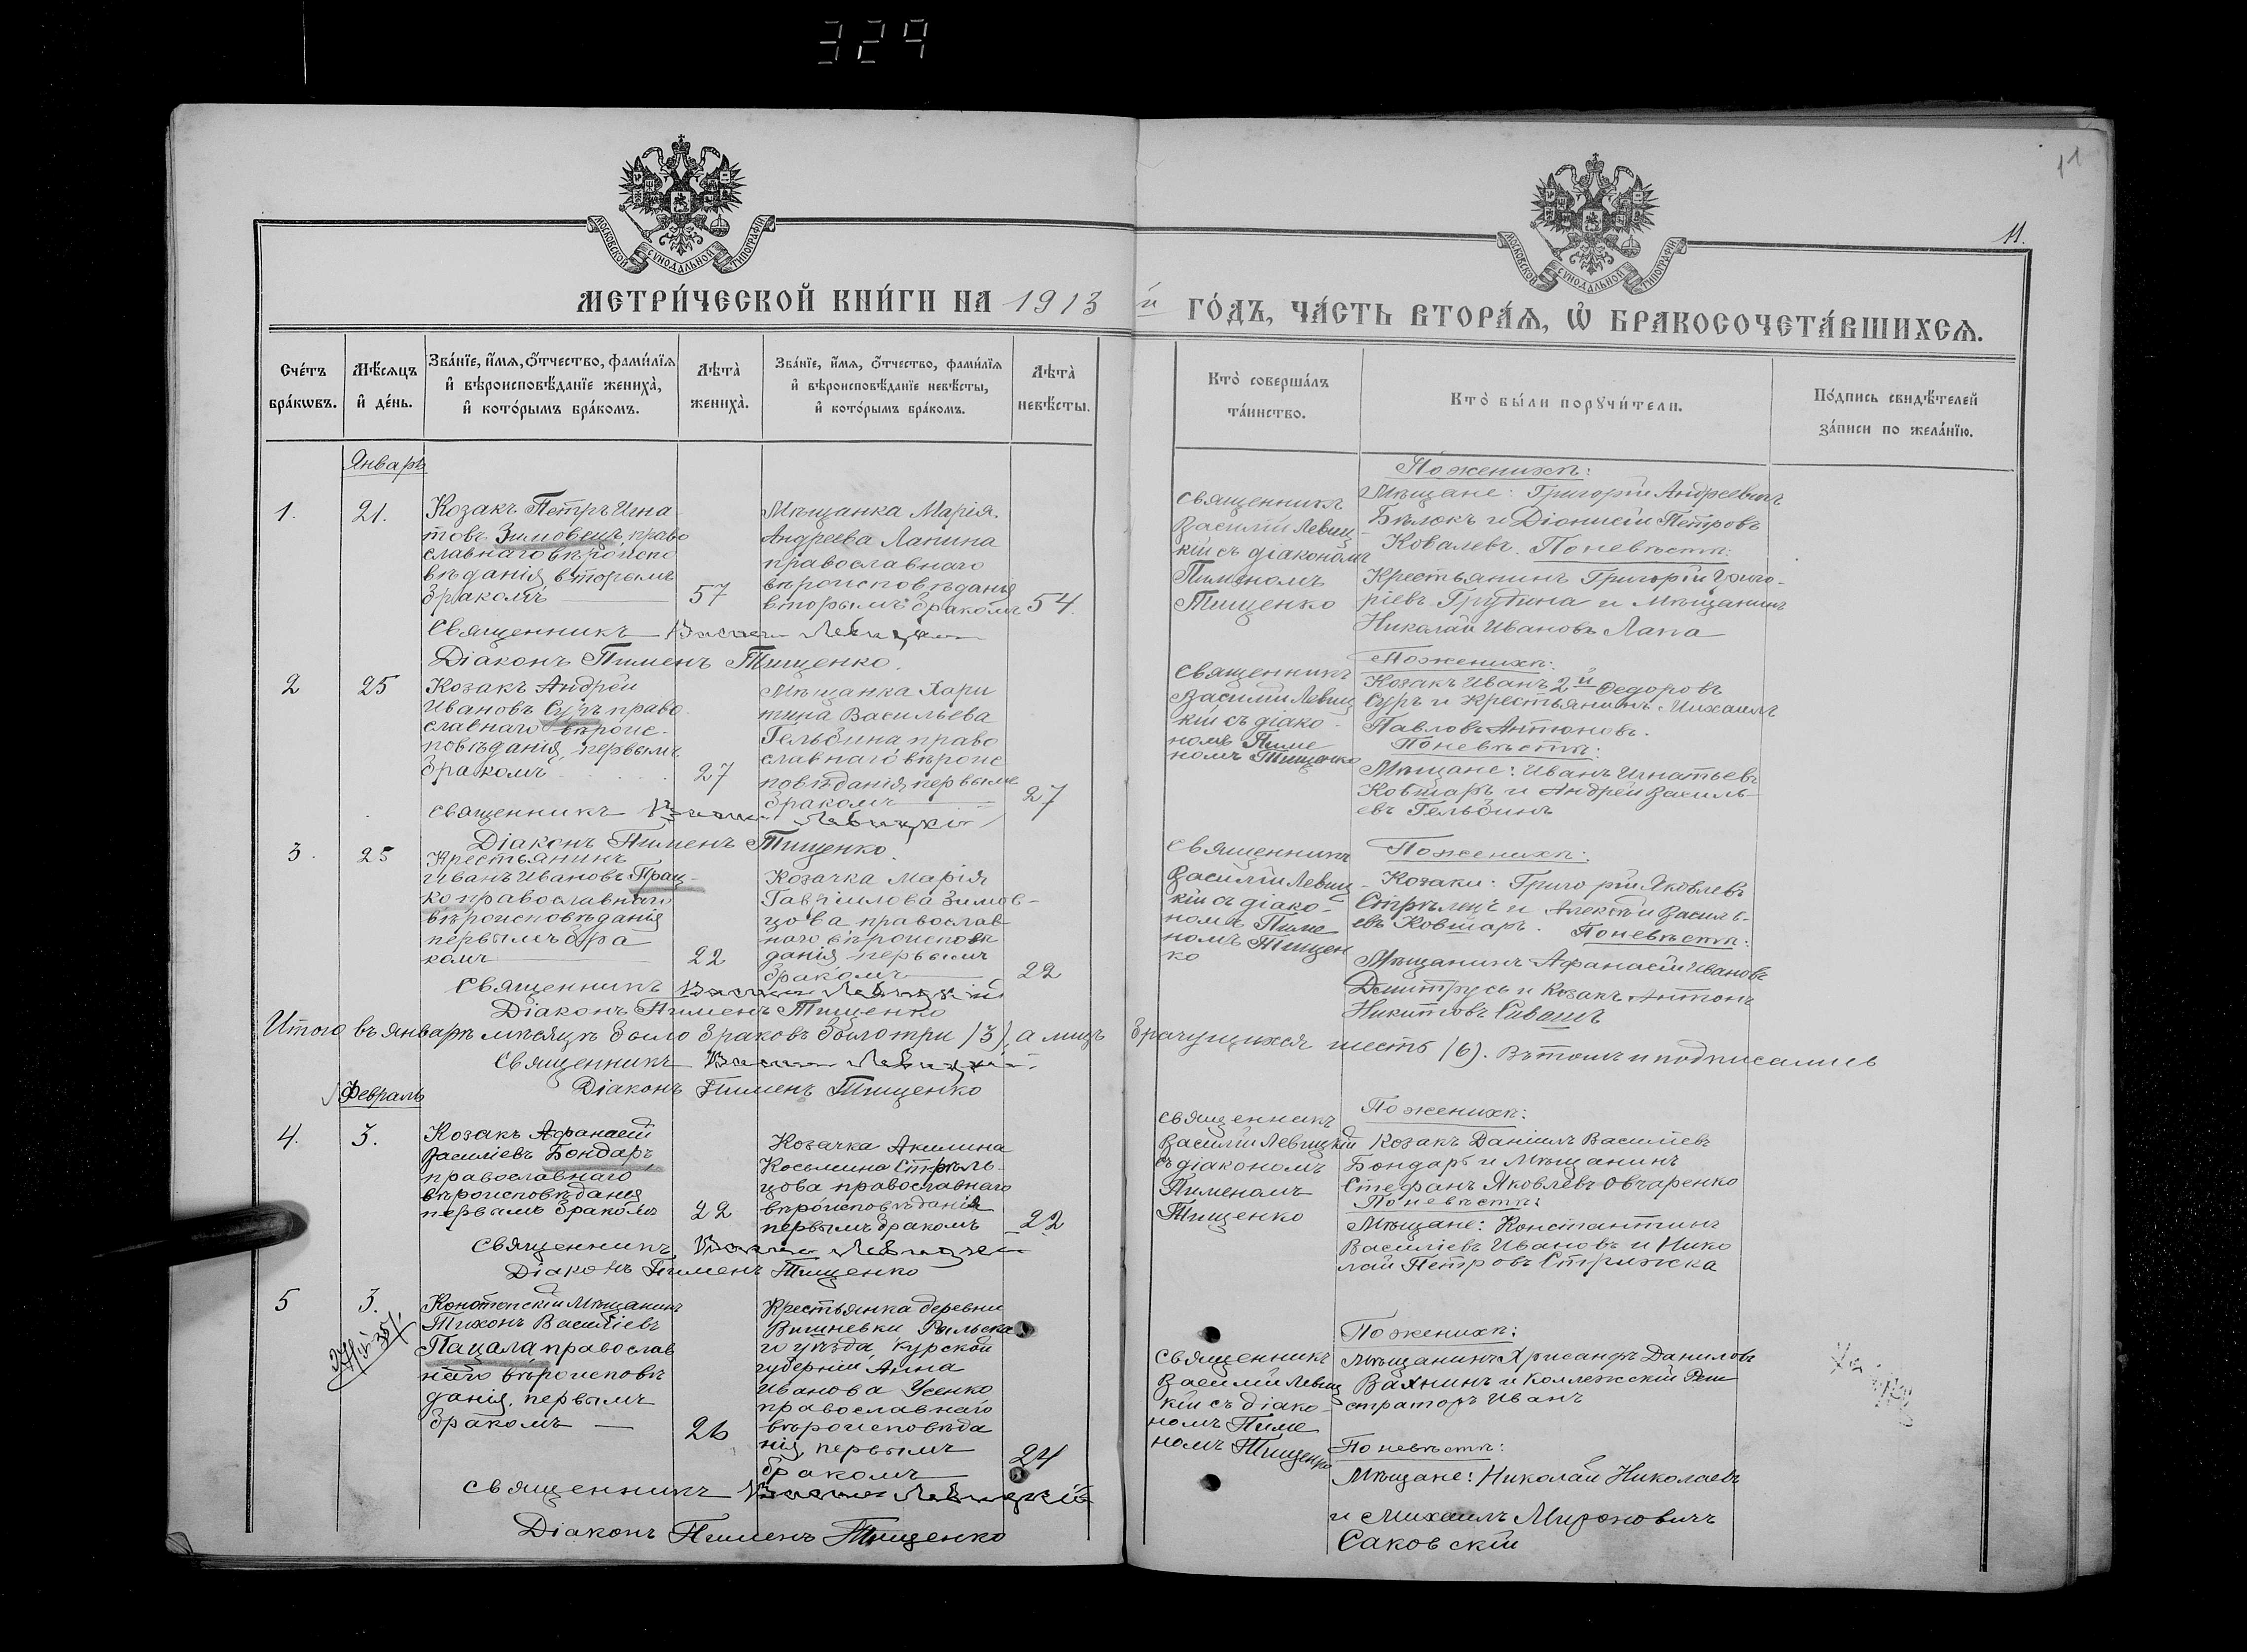 327
МОСКОВСКОЙ СУНОДАЛЬНОЙ ТИПОГРАФІИ
МОСКОВСКОЙ СУНОДАЛЬНОЙ ТИПОГРАФІИ
11
11.
МЕТРИ́ЧЕСКОЙ КНИ́ГИ НА 1913 й ГО́ДЪ, ЧА́СТЬ ВТОРА́Ѧ, Ѡ БРАКОСОЧЕТА́ВШИХСѦ.
Сче́тъ бра́кѡвъ.
Мѣ́сѧцъ и҆ де́нь.
Зва́нїе, и҆́мѧ, ѻ҆́тчество, фами́лїѧ и҆ вѣроисповѣ́данїе жениха̀, и҆ кото́рымъ бра́комъ.
Лѣта̀ жениха̀.
Зва́нїе, и҆́мѧ, ѻ҆́тчество, фами́лїѧ и҆ вѣроисповѣ́данїе невѣ́сты, и҆ кото́рымъ бра́комъ.
Лѣта̀ невѣ́сты.
Кто̀ соверша́лъ та́инство.
Кто̀ бы́ли порꙋчи́тели.
По́дпись свидѣ́телей за́писи по жела́нїю.
Январь
1.
21.
Козакъ Петръ Игна
товъ Зимовецъ право
славнаго вѣроиспо
вѣданія вторымъ
бракомъ
57
Мѣщанка Марія
Андреева Лапина
православнаго
вѣроисповѣданія
вторымъ бракомъ
54.
Священникъ
Василій Левиц
кій съ діакономъ
Пименомъ
Тищенко
По женихѣ:
Мѣщане: Григорій Андреевичъ
Бѣлокъ и Діонисій Петровъ
Ковалевъ. По невѣстѣ:
Крестьянинъ Григорій Григо-
ріевъ Грудина и Мѣщанинъ
Николай Ивановъ Лапа
Священникъ Василій Левицкій
Діаконъ Пименъ Тищенко.
2
25
Козакъ Андрей
Ивановъ Суръ право
славнаго вѣроис-
повѣданія, первымъ
бракомъ
27
Мѣщанка Хари
тина Васильева
Гельбина право
славнаго вѣроис
повѣданія первымъ
бракомъ
27
Священникъ
Василій Левиц
кій съ діако-
номъ Пиме
номъ Тищенко
По женихѣ:
Козакъ Иванъ 2й Ѳедоровъ
Суръ и Крестьянинъ Михаилъ
Павловъ Антоновъ.
По невѣстѣ:
Мѣщане: Иванъ Игнатьевъ
Ковшаръ и Андрей Василь-
евъ Гельбинъ
Священникъ Василій Левицкій
Діаконъ Пименъ Тищенко.
3.
25
Крестьянинъ
Иванъ Ивановъ Прац-
ко православнаго
вѣроисповѣданія
первымъ бра
комъ
22
Козачка Марія
Гавріилова Зимов-
цова православ-
наго вѣроисповѣ
данія первымъ
бракомъ
22
Священникъ
Василій Левиц-
кій съ діако-
номъ Пиме
номъ Тищен
ко
По женихѣ:
Козаки: Григорій Яковлевъ
Стрѣлецъ и Алексѣй Василь-
евъ Ковшаръ. По невѣстѣ:
Мѣщанинъ Афанасій Ивановъ
Дмитрусь и Козакъ Антонъ
Никитовъ Сивашъ
Священникъ Василій Левицкій
Діаконъ Пименъ Тищенко
Итого въ январѣ мѣсяцѣ было браковъ было три (3), а лицъ брачущихся шесть (6). Въ томъ и подписались
Священникъ Василій Левицкій
Діаконъ Пименъ Тищенко
Февраль
4.
3.
Козакъ Афанасій
Василіевъ Бондарь
православнаго
вѣроисповѣданія
первымъ бракомъ
22
Козачка Акилина
Косьмина Стрѣль-
цова православнаго
вѣроисповѣданія
первымъ бракомъ
22
Священникъ
Василій Левицкій
съ діакономъ
Пименомъ
Тищенко
По женихѣ:
Козакъ Даніилъ Василіевъ
Бондарь и Мѣщанинъ
Стефанъ Яковлевъ Овчаренко
По невѣстѣ:
Мѣщане: Константинъ
Василіевъ Ивановъ и Нико
лай Петровъ Стрижска
Священникъ Василій Левицкій
Діаконъ Пименъ Тищенко
5
3.
Конотопскій Мѣщанинъ
Тихонъ Василіевъ
Пацала православ
наго вѣроисповѣ
данія, первымъ
бракомъ
26
Крестьянка деревни
Вишневки Рыльска
го уѣзда, Курской
губерніи Анна
Иванова Усенко
православнаго
вѣроисповѣда
нія, первымъ
бракомъ
24
Священникъ
Василій Левиц
кій съ діако-
номъ Пиме
номъ Тищенко
По женихѣ:
Мѣщанинъ Хрисанфъ Даниловъ
Вахнинъ и Коллежскій Реги
страторъ Иванъ
По невѣстѣ:
Мѣщане: Николай Николаевъ
и Михаилъ Мироновичъ
Саковскій
Священникъ Василій Левицкій
Діаконъ Пименъ Тищенко